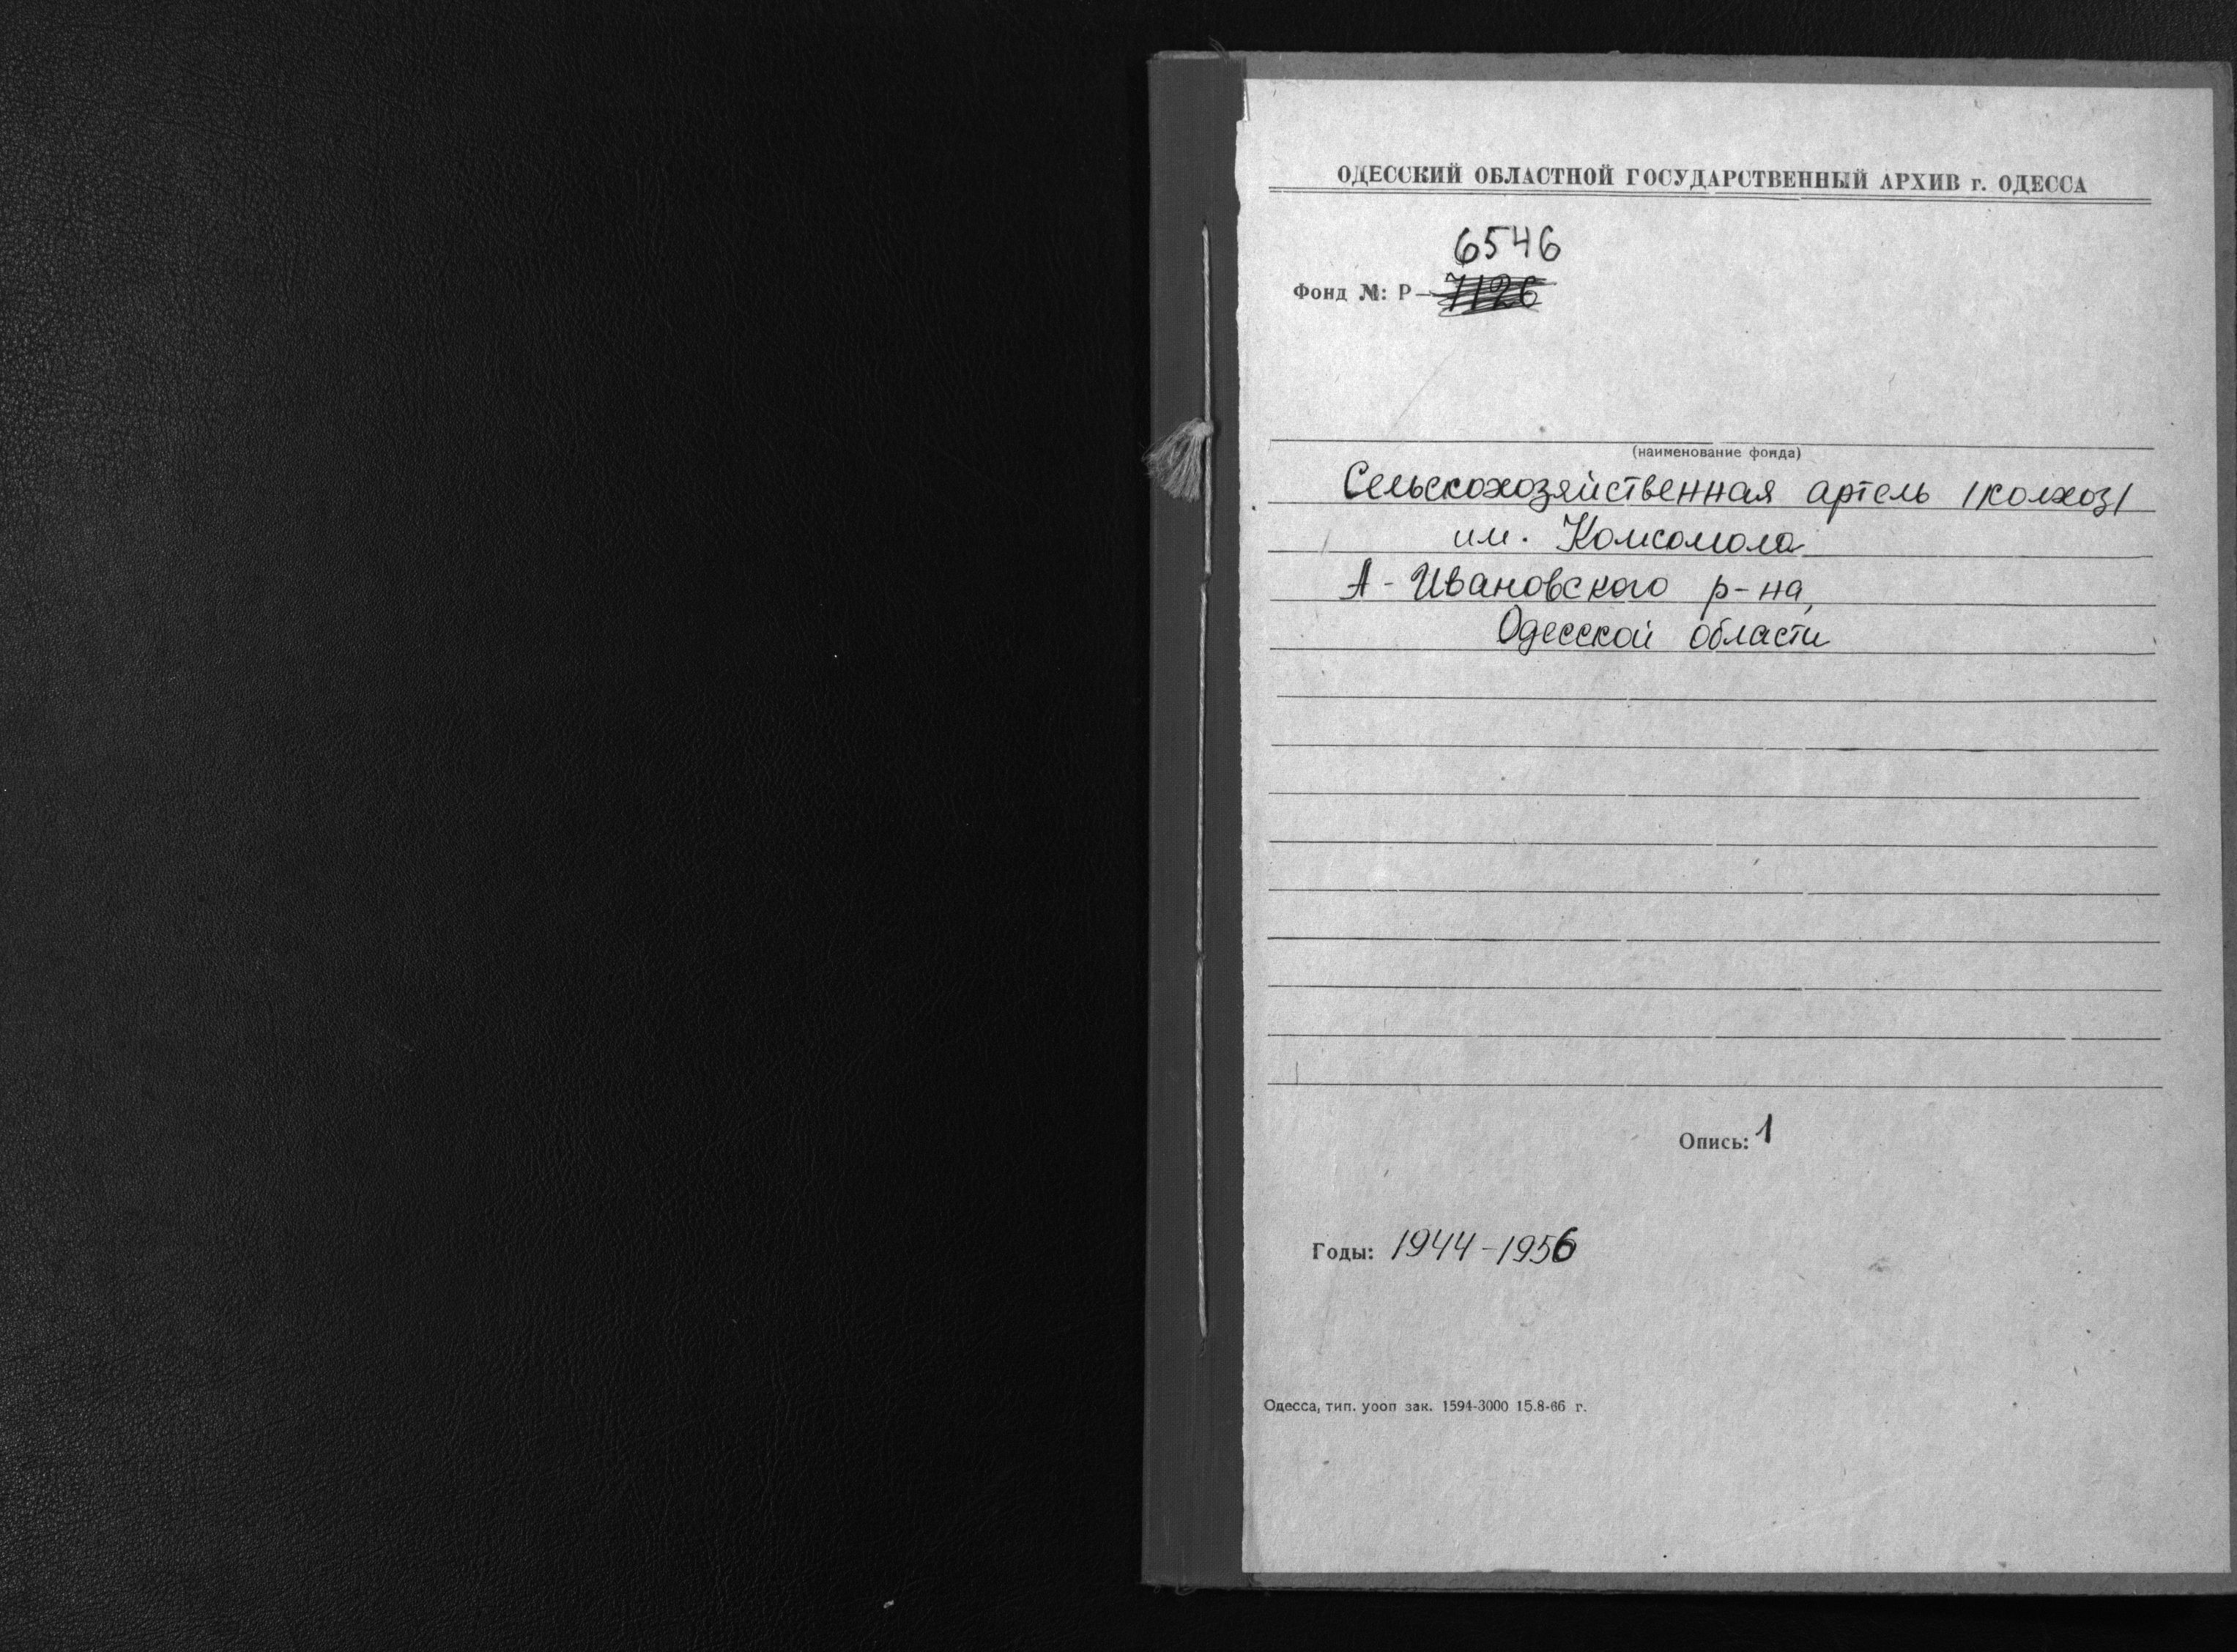 ОДЕССКИЙ ОБЛАСТНОЙ ГОСУДАРСТВЕННЫЙ АРХИВ г. ОДЕССА
6546
Фонд №: Р-7126
(наименование фонда)
Сельскохозяйственная артель /колхоз/
им. Комсомола
А-Ивановского р-на,
Одесской области
Опись: 1
Годы: 1944-1956
Одесса, тип. уооп зак. 1594-3000 15.8-66 г.